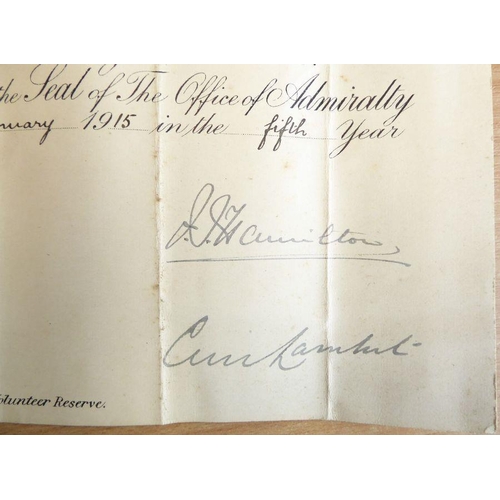 the Seal of The Office of Admiralty
nuary 1915 in the fifth Year
F. T. Hamilton
Lambert
Volunteer Reserve.